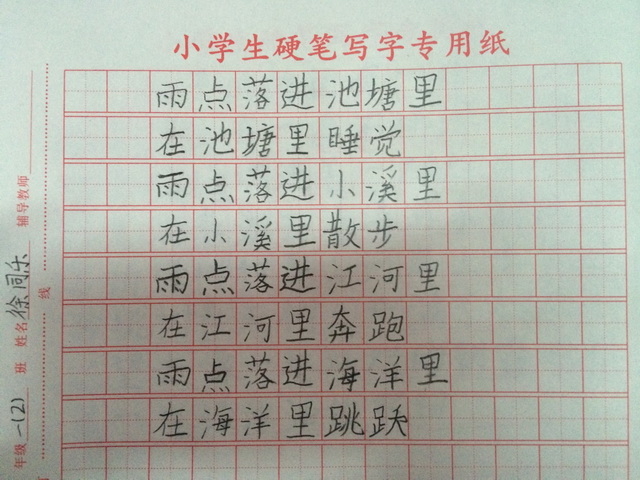 小学生硬笔写字专用纸
雨点落进池塘里
在池塘里睡觉
雨点落进小溪里
在小溪里散步
雨点落进江河里
在江河里奔跑
雨点落进海洋里
在海洋里跳跃
年级一(2)班 姓名徐同乐 辅导教师
线